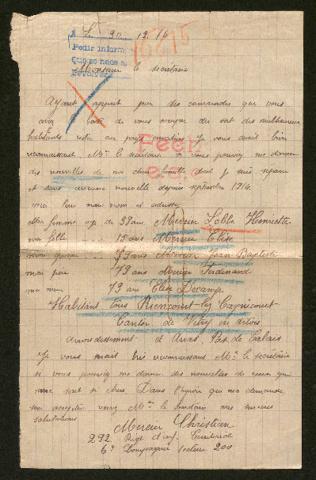 Le 20 12 16
Pedir inform
16615
Monsieur le secrétaire
Ayant appris par des camarades que vous
avez de vous occuper du sort des malheureux
habitants resté au pays envahis Je vous serait bien
reconnaissant Mr le secrétaire si vous pouvez me donner
des nouvelles de ma chère famille dont je suis séparé
et sans aucune nouvelle depuis septembre 1914
voici leur nom et adresse
ma femme âgé de 38 ans Mercier Henriette
ma fille 13 ans Mercier Elise
9 ans Mercier Jean Baptiste
mon père 78 ans Mercier Ferdinand
ma mère 72 ans Elise
Habitant tous Riencourt les Cagnicourt
Canton de Vitry en Artois
Arrondissement d'Arras, Pas de Calais
Je vous serait bien reconnaissant Mr le secrétaire
si vous pouvez me donner des nouvelles de ceux qui
me sont si chers Dans l'espoir que ma demande
soit acceptée
salutations
Mercier Christian
292 Regt d'inf.
6e Compagnie Secteur 200